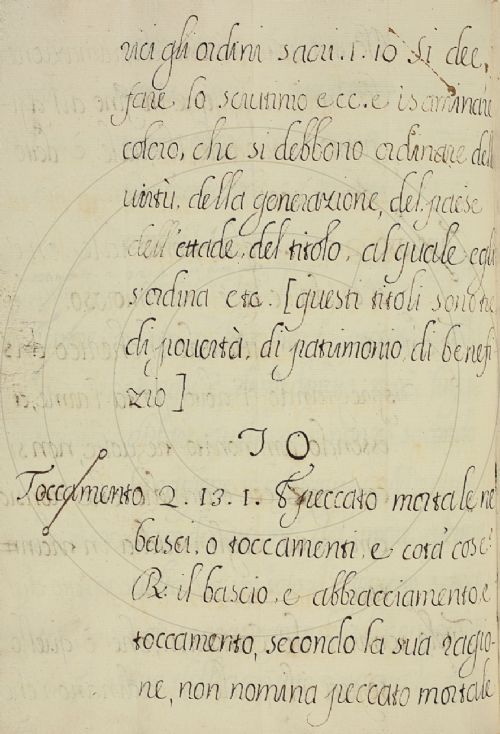 rici gli ordini sacri. 1. 10 Si dee,
fare lo scrutinio ecc. e isaminare
coloro, che si debbono ordinare dell
virtù, della generazione, del paese
dell'ettade, del titolo, al quale egli
s'ordina etc. [questi titoli sono tre
di povertà, di patrimonio, di benefi
zio]
TO
Toccamento 2. 13. 1. peccato mortale ne
basci, o toccamenti, e cota' cose?
R: il bascio, e abbracciamento, e
toccamento, secondo la sua ragio-
ne, non nomina peccato mortale